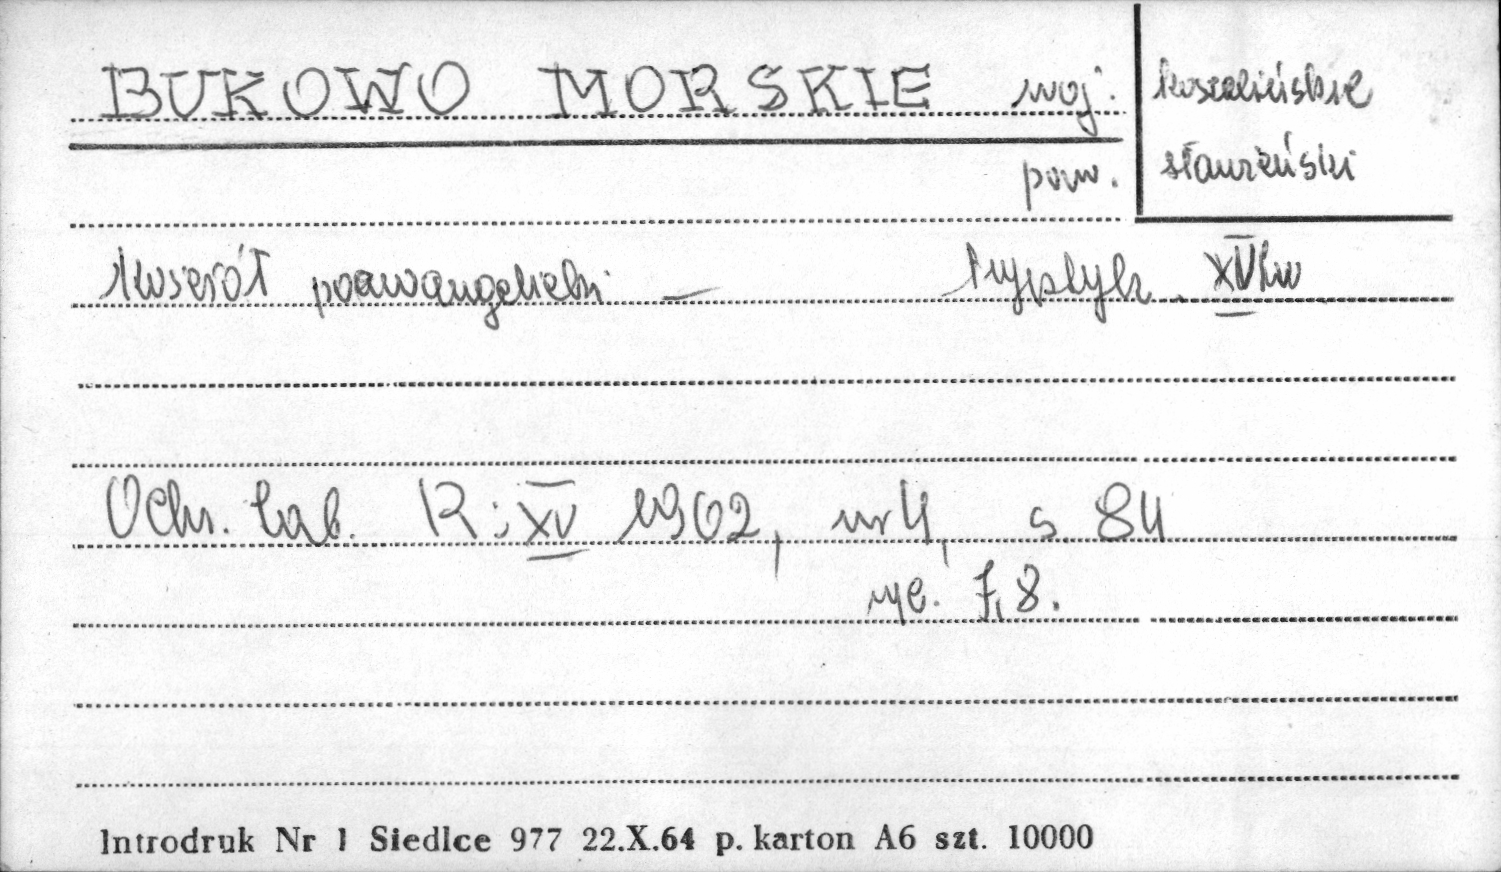 BUKOWO MORSKIE woj. koszalińskie
pow. sławieński
Kościół poewangelicki — tryptyk XV w
Ochr. Zab. R: XV 1962, nr 4, s. 84
ryc. 7, 8.
Introdruk Nr 1 Siedlce 977 22.X.64 p. karton A6 szt. 10000